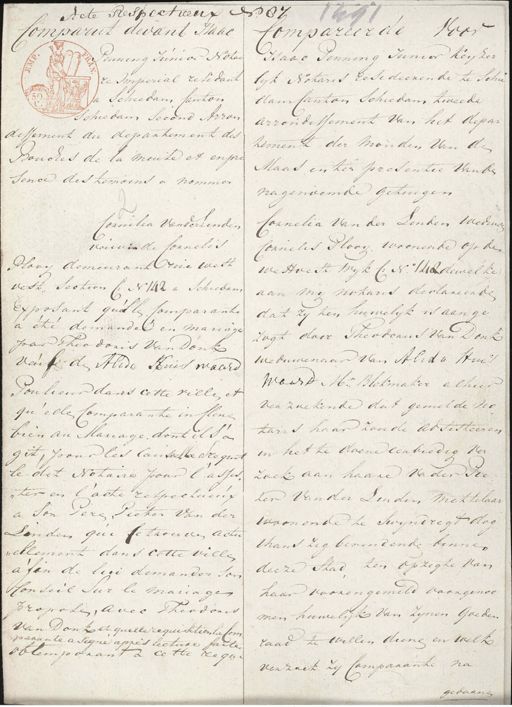 Acte Respectueux No 87
1491
Comparut devant Isaac
Penning Junior Notai
re Imperial residant
a Schiedam, Canton
Schiedam Second Arron
dissement du departement des
Bouches de la meuse et en pre
sence des temoins a nommer
Cornelia Vander Linden
veuve de Cornelis
Plooy, demeurant
vest, Section C No 142 a Schiedam
Exposant qu'elle Comparante
a été demandée en mariage
par Theodorus Van Donk
veuf de Alida Huiswaard
dans cette ville, et
qu'elle Comparante
bien au Mariage dont il s'a
git, pour les
le dit Notaire pour l'assis
ter en l'acte respectueux
a Son Pere, Pieter Van der
Linden qui se trouve actu
ellement dans cette ville
afin de lui demander son
Conseil Sur le mariage
proposé, avec Theodorus
Van Donk, et qu'elle
parante a signé après lecture faite
obtemperant a cette requi
Compareerde Voor
Isaac Penning Junior Keyzer
lyk Notaris resideerende te Schie
dam Canton Schiedam, tweede
arrondissement Van het depar
tement der Monden Van de
Maas en ter presentie Van de
nagenoemde getuigen
Cornelia Van der Linden Weduwe
Cornelis Plooy, woonende op de
Wyk C No 142 dewelke
aan my notaris declareerde
dat zy ten huwelijk is aange
zogt door Theodorus Van Donk
weduwenaar van Alida Huis
Waard alhier
verzoekende dat gemelde No
taris haar zoude adsisteeren
in het te doene eerbiedig ver
zoek aan haare vader Pie
ter Vander Linden
woonende te Zwyndregt dog
thans zig bevindende binnen
deeze Stad, ten opzigte van
haar voorengemeld voorgenoo
men huwelijk van zynen Goeden
raad te willen diene, en welk
verzoek zy Comparante na
gedaane